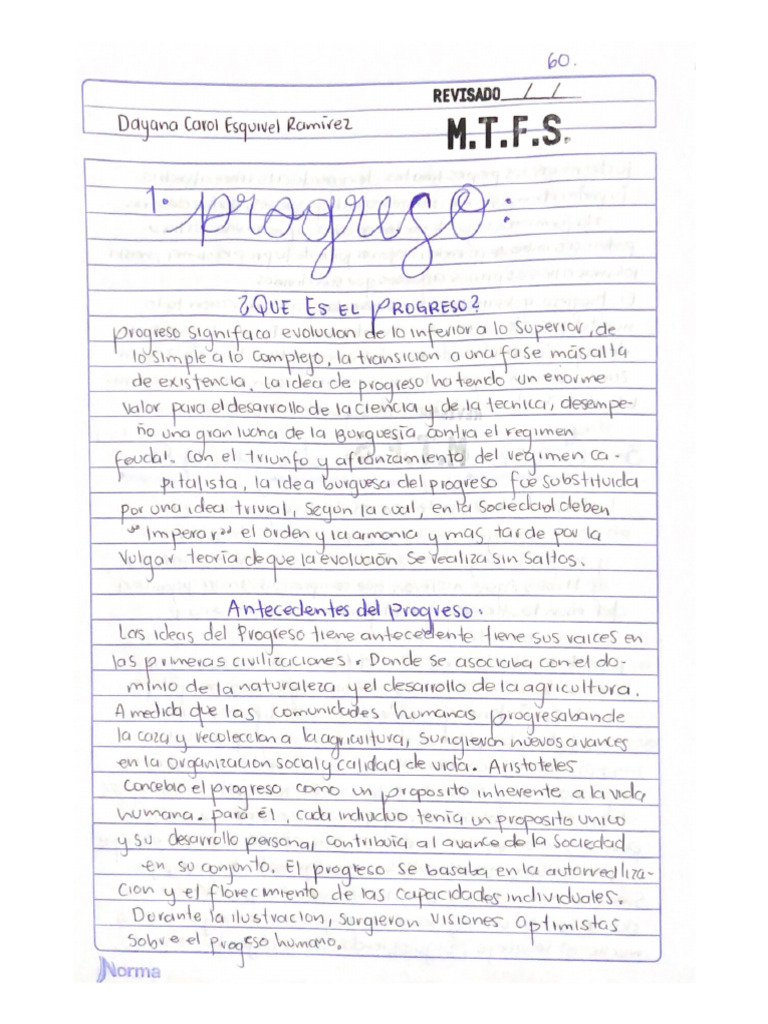 60.
REVISADO__/__/__
Dayana Carol Esquivel Ramirez
M.T.F.S.
1. progreso:
¿QUE ES EL PROGRESO?
Progreso significa evolucion de lo inferior a lo superior, de
lo simple a lo complejo, la transicion a una fase más alta
de existencia, la idea de progreso ha tendo un enorme
valor para el desarrollo de la ciencia y de la tecnica, desempe-
ño una gran lucha de la Burguesía contra el regimen
feudal. con el triunfo y afianzamiento del regimen ca-
pitalista, la idea burguesa del progreso fué substituida
por una idea trivial, según la cual, en la sociedad deben
"Imperar" el orden y la armonia y mas tarde por la
vulgar teoría de que la evolución se realiza sin saltos.
Antecedentes del progreso.
Las ideas del Progreso tiene antecedente tiene sus raices en
las primeras civilizaciones. Donde se asociaba con el do-
minio de la naturaleza y el desarrollo de la agricultura.
A medida que las comunidades humanas progresabande
la caza y recoleccion a la agricultura, surigieron nuevos avances
en la organizacion social y calidad de vida. Aristoteles
Concebio el progreso como un proposito inherente a la vida
humana. para él, cada individuo tenía un proposito unico
y su desarrollo personal contribuía al avance de la sociedad
en su conjunto. El progreso se basaba en la autorrealiza-
cion y el florecimiento de las capacidades individuales.
Durante la ilustracion, surgieron visiones optimistas
sobre el progeso humano.
Norma